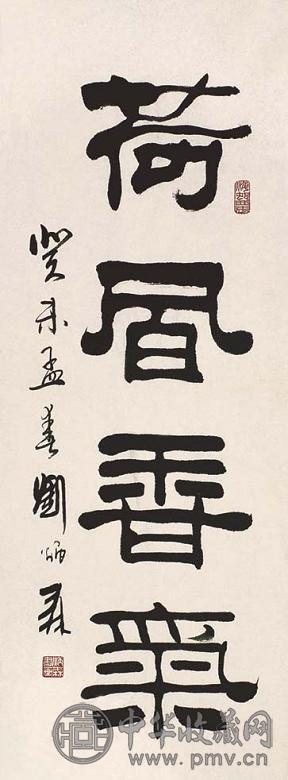 荷風香氣
癸未孟春劉炳森
中华收藏网
www.pmv.cn